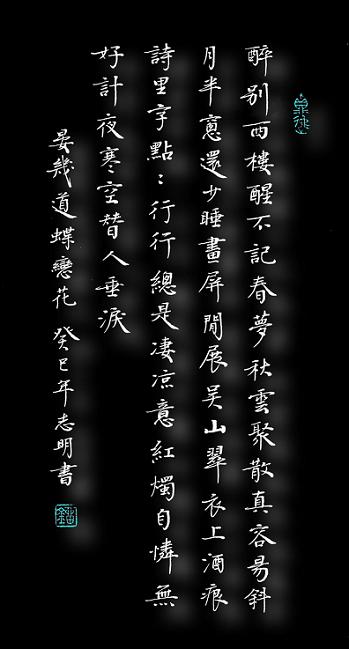 醉別西樓醒不記春夢秋雲聚散真容易斜
月半窻還少睡畫屏閒展吳山翠衣上酒痕
詩里字點〻行行總是凄涼意紅燭自憐無
好計夜寒空替人垂淚
晏幾道蝶戀花 癸巳年志明書